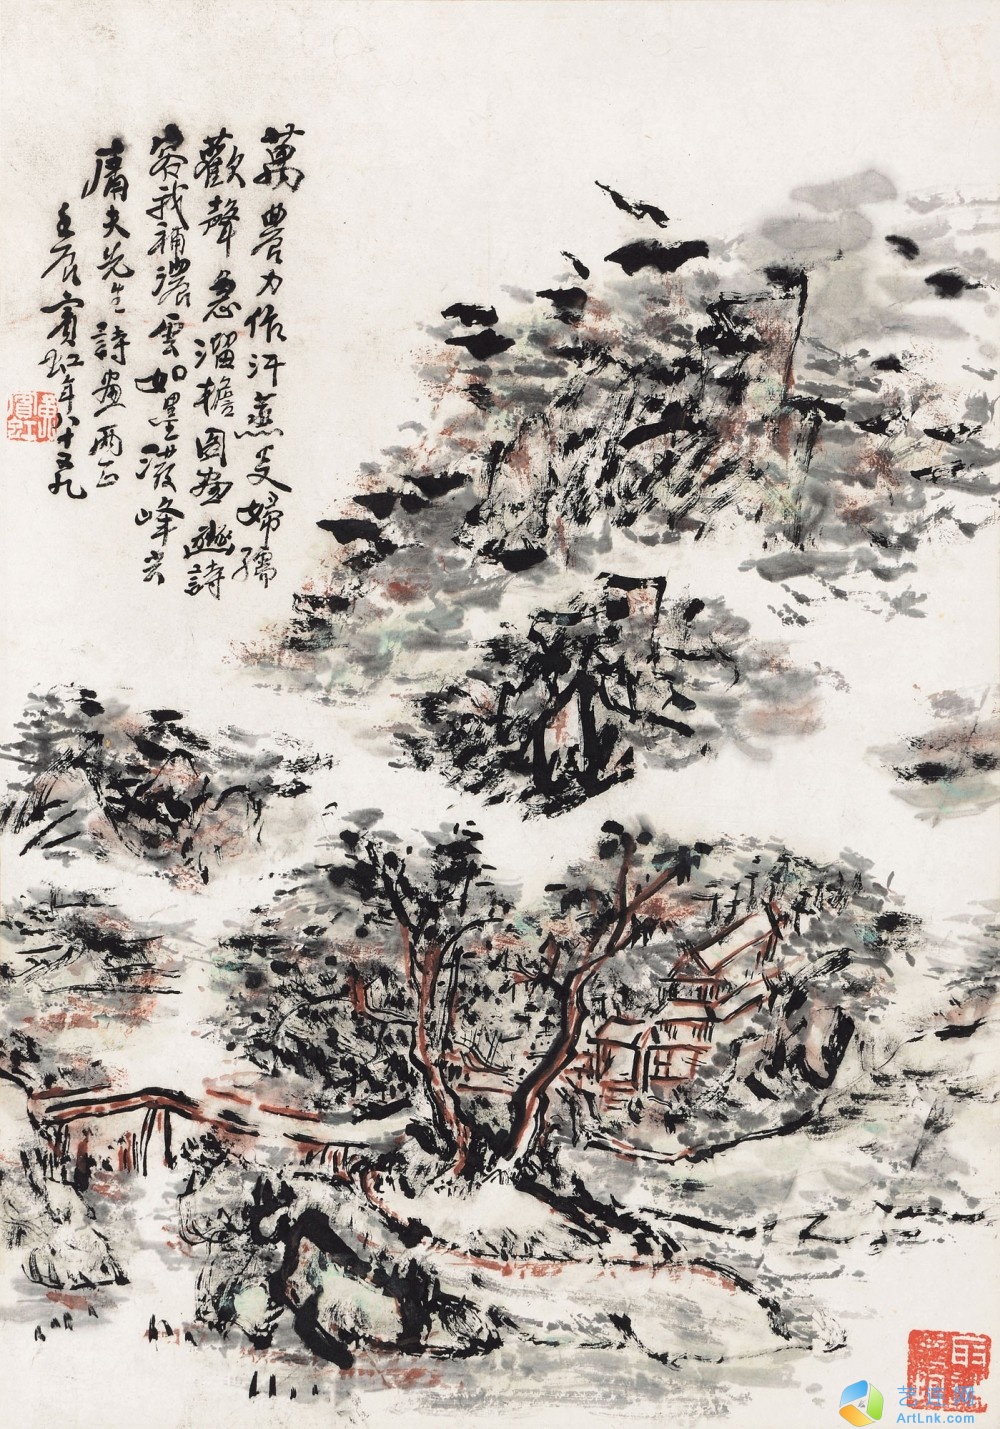 萬農力作汗蒸支婦孺
歡聲急溜檐圖畫邀詩
容我補濃雲如墨潑峰尖
庸夫先生詩畫兩正
壬辰賓虹年八十又九
黃賓虹
艺连网
ArtLnk.com